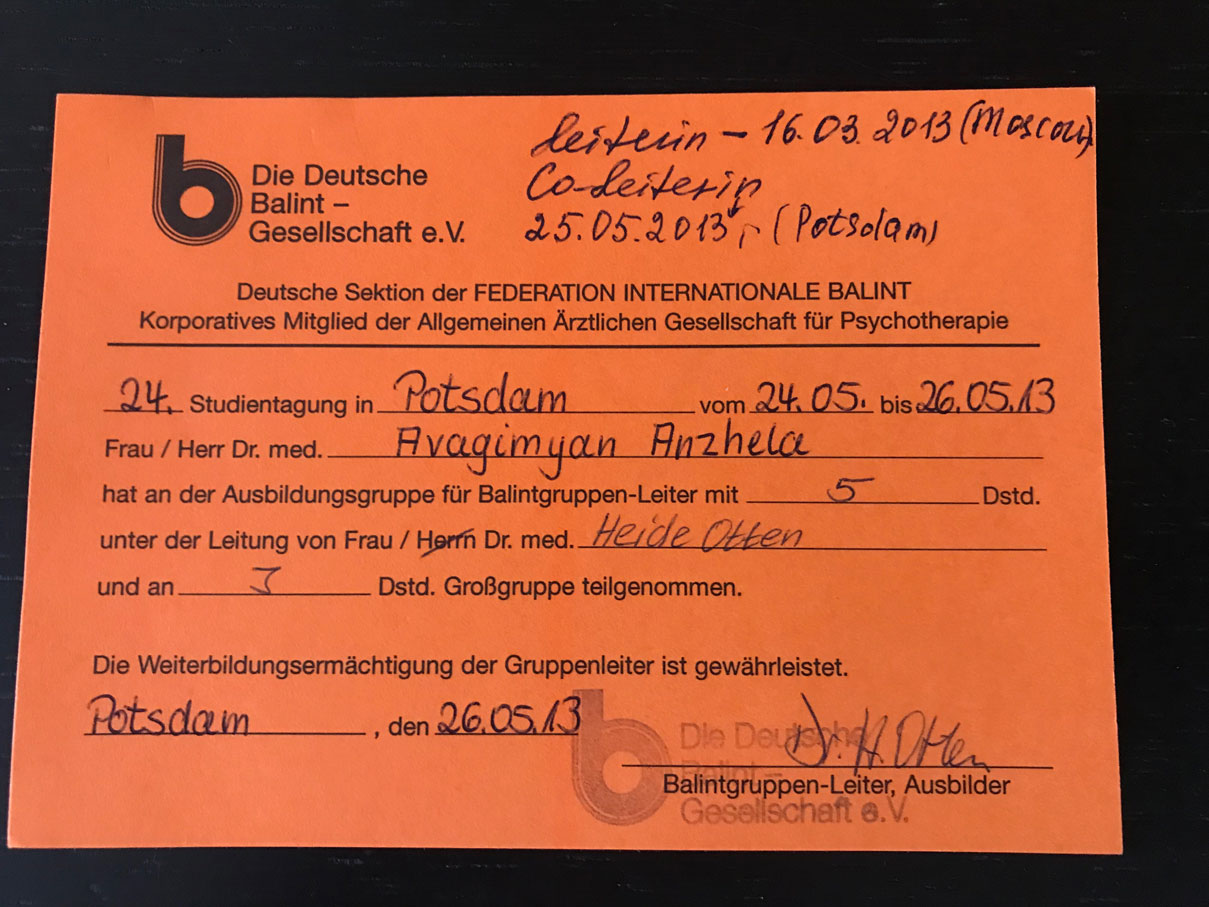 Die Deutsche
Balint –
Gesellschaft e.V.
Leiterin – 16.03.2013 (Moscow)
Co-Leiterin
25.05.2013 – (Potsdam)
Deutsche Sektion der FEDERATION INTERNATIONALE BALINT
Korporatives Mitglied der Allgemeinen Ärztlichen Gesellschaft für Psychotherapie
24. Studientagung in Potsdam vom 24.05. bis 26.05.13
Frau / Herr Dr. med. Avagimyan Anzhela
hat an der Ausbildungsgruppe für Balintgruppen-Leiter mit 5 Dstd.
unter der Leitung von Frau / Herrn Dr. med. Heide Otten
und an Dstd. Großgruppe teilgenommen.
Die Weiterbildungsermächtigung der Gruppenleiter ist gewährleistet.
Potsdam, den 26.05.13
Dr. H. Otten
Balintgruppen-Leiter, Ausbilder
Die Deutsche
Balint –
Gesellschaft e.V.